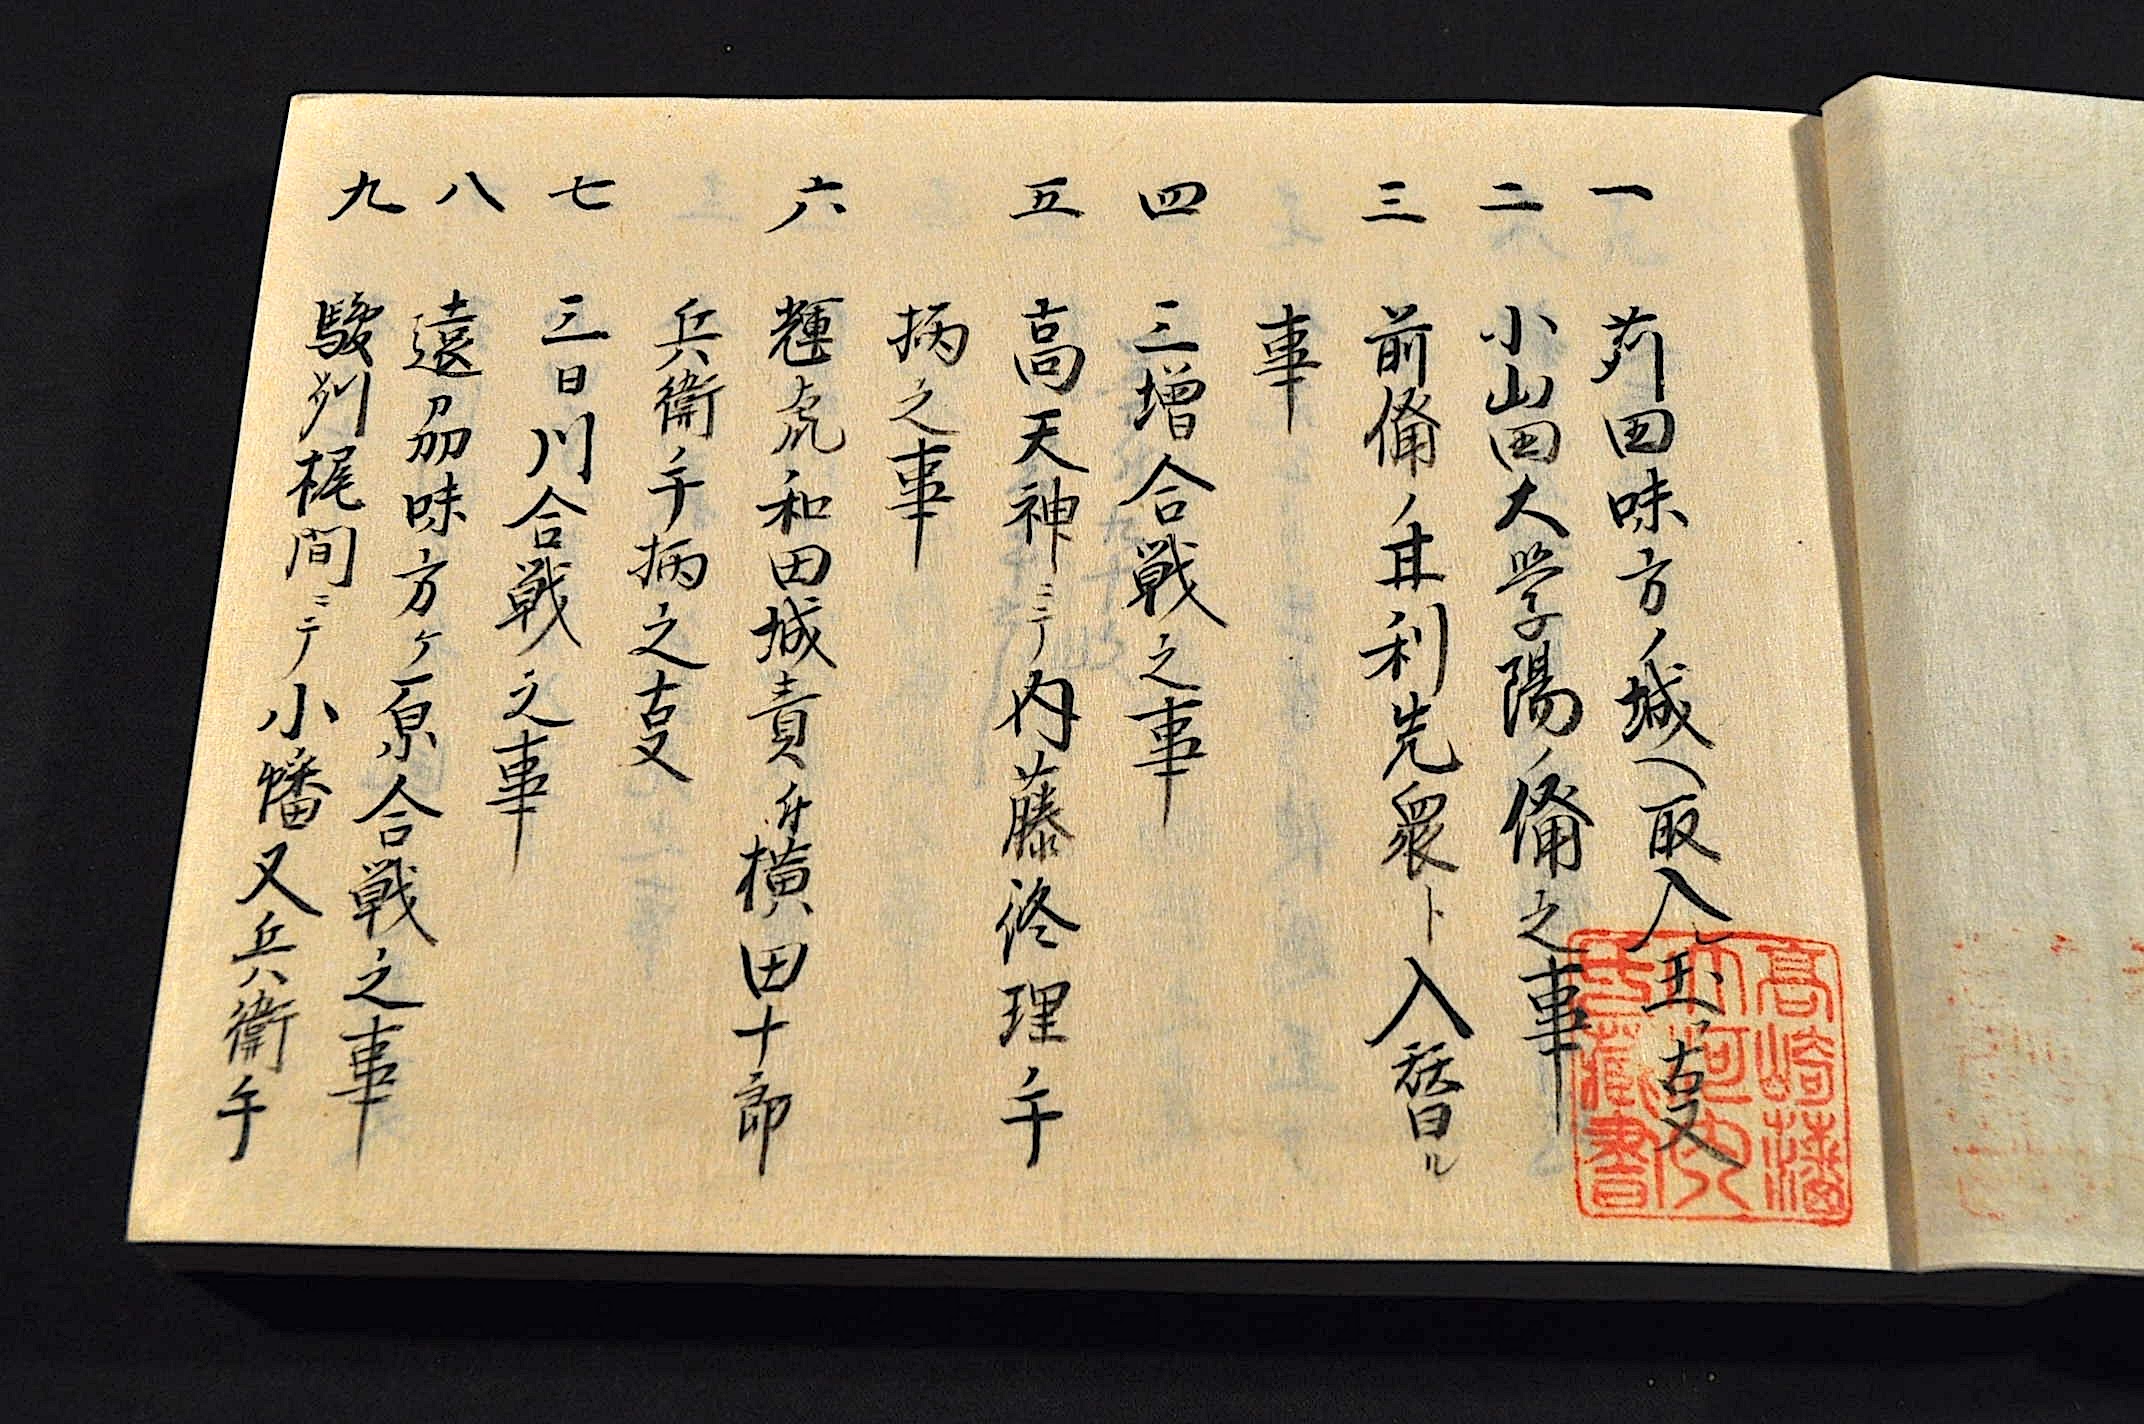 一 苅田味方ノ城ヘ取入ル玉フ叓
二 小山田大学陽ノ備之事
三 前備ノ甘利先衆ト入替ル
事
四 三増合戦之事
五 高天神ニテ内藤修理手
柄之事
六 輝虎和田城責付横田十郎
兵衛手柄之叓
七 三日川合戦之事
八 遠刕味方ヶ原合戦之事
九 駿刕梶間ニテ小幡又兵衛手
高崎藩
大河内
書